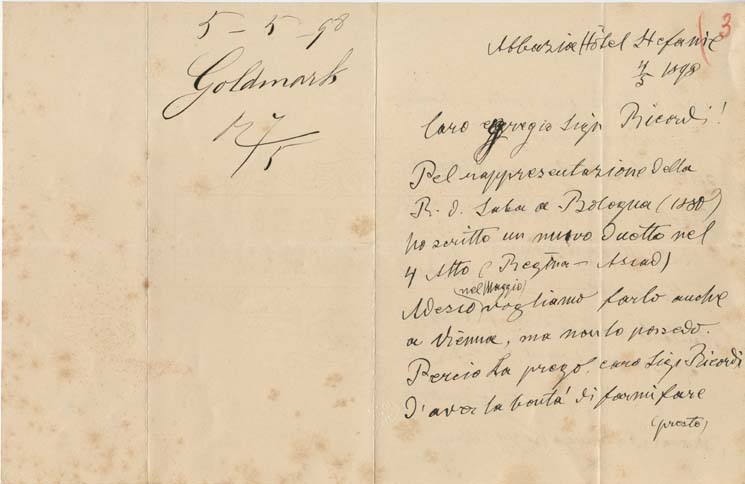 5 – 5 – 98
Goldmark
R 7/5
3
Abbazia Hôtel Stefanie
4/5 1898
Caro egregio Sigr Ricordi!
Pel rappresentazione della
R. d. Saba a Bologna (1880)
ho scritto un nuovo duetto nel
4 Atto (Regina – Assad)
(nel Maggio)
Adesso vogliamo farlo anche
a Vienna, ma non lo possedo.
Percio La prego, caro Sigr Ricordi
d'aver la bontá di farmi fare
(presto)